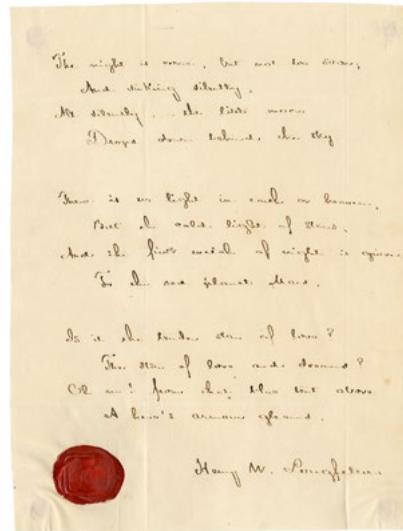 The night is come, but not too soon;
And sinking silently,
All silently, the little moon
Drops down behind the sky

There is no light in earth or heaven,
But the cold light of stars,
And the first watch of night is given
To the red planet Mars.

Is it the tender star of love?
The star of love and dreams?
Oh no! from that blue tent above
A hero's armour gleams.

Henry W. Longfellow